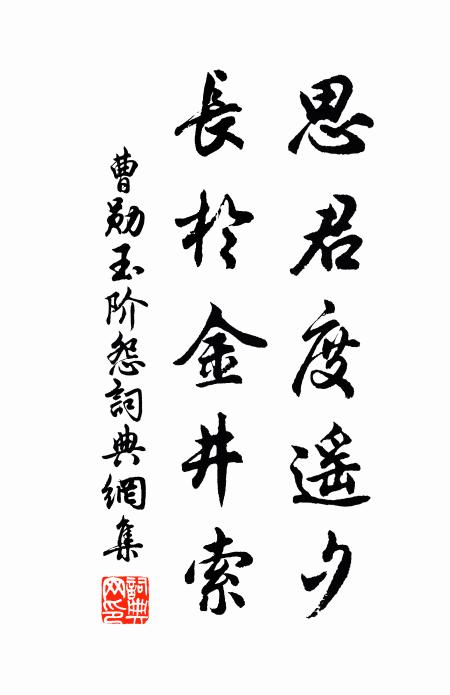 思君度遥夕
長於金井索
曹勋玉阶怨詞典網集